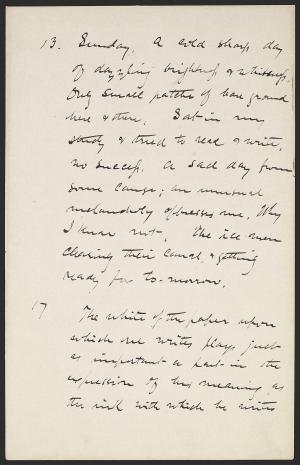 13. Sunday, A cold sharp day
of dazzling brightness & whiteness.
Only small patches of bare ground
here & there. Sat in my
study & tried to read & write,
no success. A sad day from
some cause; an unusual
melancholy oppresses me. Why
I know not. The ice men
clearing their canal, & getting
ready for to-morrow.
17 The white of the paper upon
which one writes plays just
as important a part in the
expression of his meaning as
the ink with which he writes